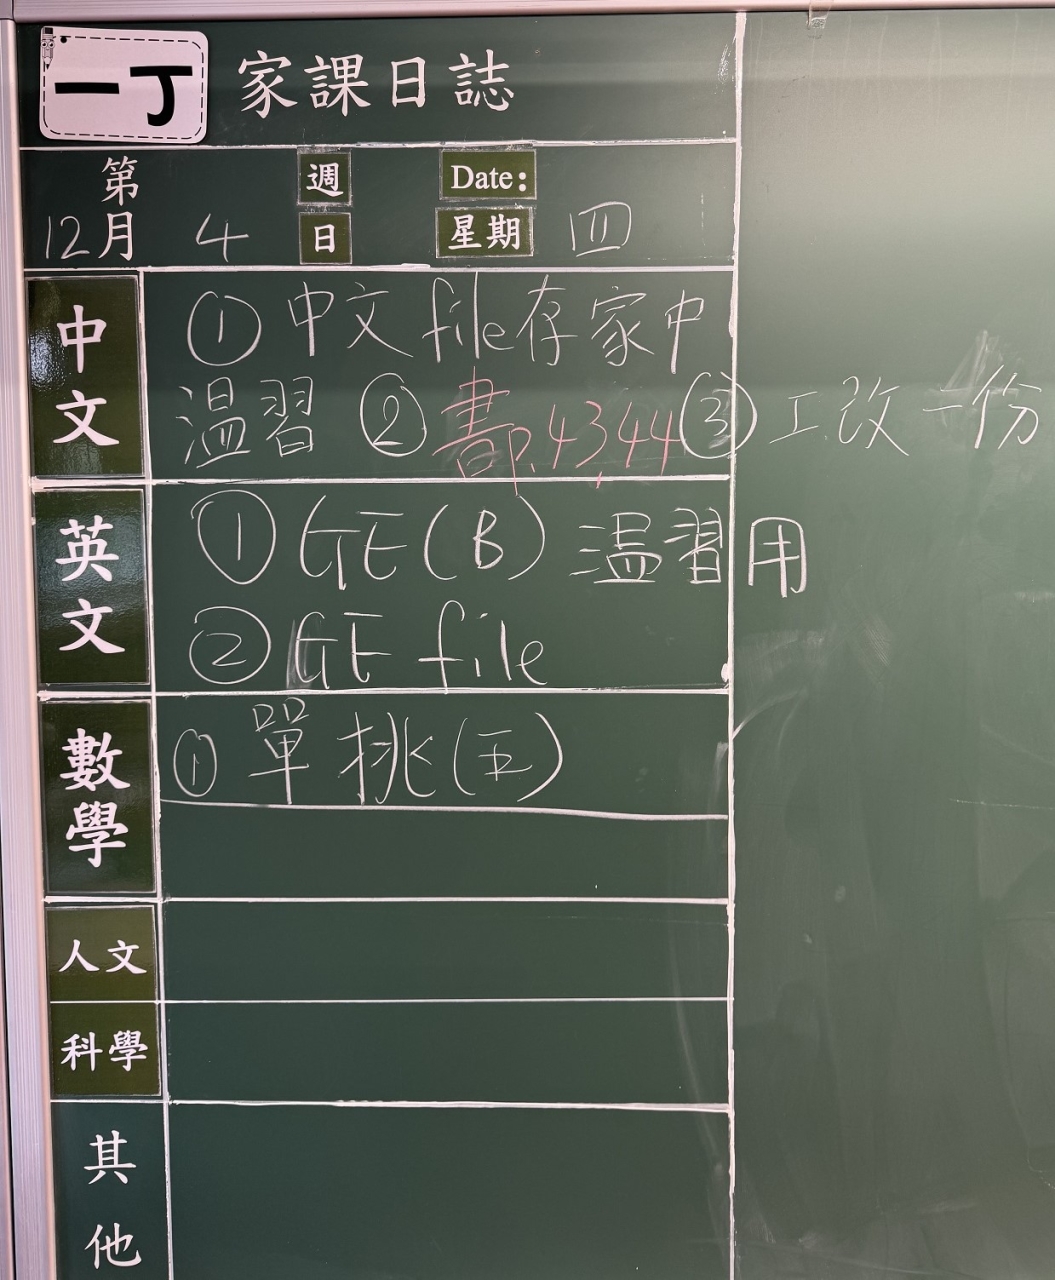 一丁 家課日誌
第 週 Date:
12月 4 日 星期 四
中文
① 中文 file存家中
温習 ② 書p.43,44 ③ 工.改一份
英文
① GE(B) 温習用
② GE file
數學
① 單挑(五)
人文
科學
其他